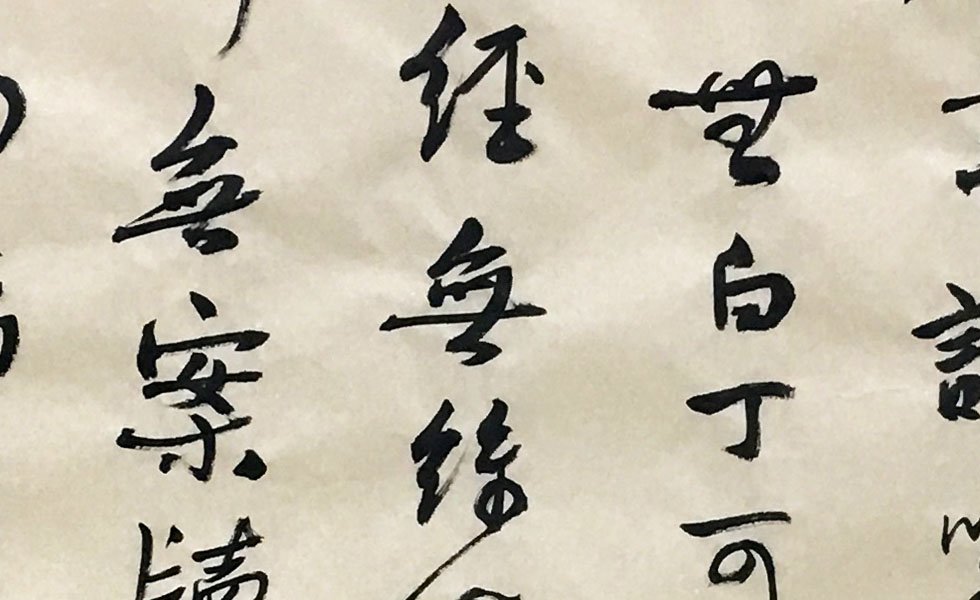 無白丁可
經無絲
無案牘